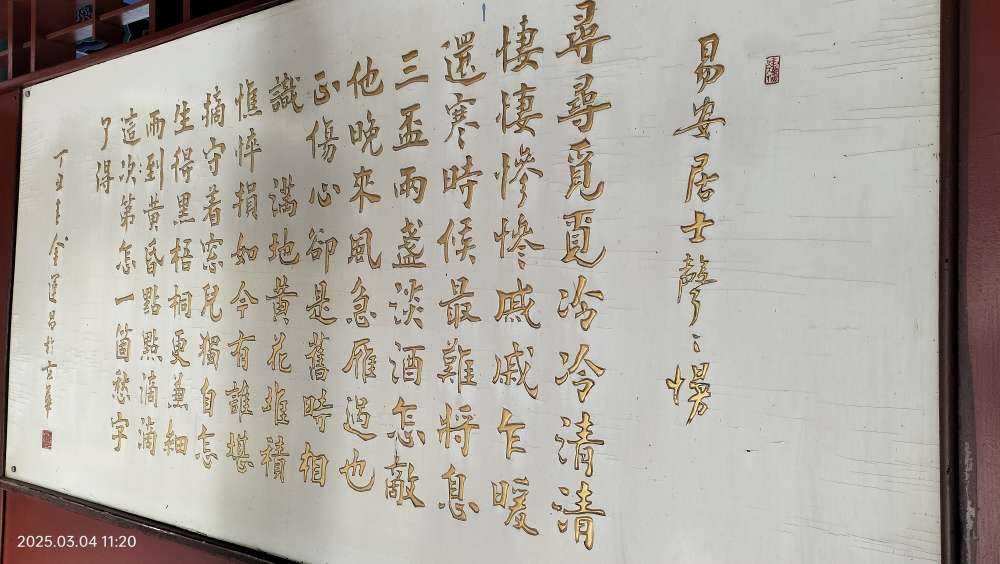 易安居士聲〻慢
尋尋覓覓冷冷清清
悽悽慘慘戚戚乍暖
還寒時候最難將息
三盃兩盞淡酒怎敵
他晚來風急雁過也
正傷心卻是舊時相
識 滿地黃花堆積
憔悴損如今有誰堪
摘守着窓兒獨自怎
生得黑梧桐更兼細
雨到黃昏點點滴滴
這次第怎一箇愁字
了得
丁丑 於京華
2025.03.04 11:20